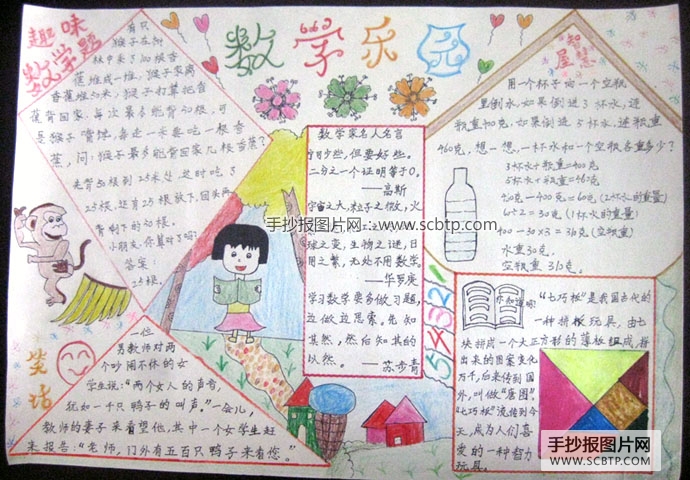 数学乐园
趣味
数学题
有只
猴子在树
林中采了100根香
蕉堆成一堆，猴子家离
香蕉堆50米，猴子打算把香
蕉背回家，每次最多能背50根，可
是猴子嘴馋，每走一米要吃一根香
蕉，问：猴子最多能背回家几根香蕉？
先背50根到25米处，这时，吃了
25根，还有25根，放下。回头再
背剩下的50根。
小朋友，你算对了吗？
答案：
25根。
笑话
一位
男教师对两
个吵闹不休的女
学生说：“两个女人的声音，
犹如一千只鸭子的叫声。”一会儿，
教师的妻子来看望他，其中一个女学生赶
来报告：“老师，门外有五百只鸭子来看您。”
数学家名人名言
宁可少些，但要好些。
二分之一个证明等于0。
——高斯
宇宙之大，粒子之微，火
球之变，生物之谜，日
用之繁，无处不用数学。
——华罗庚
学习数学要多做习题，
边做边思索。先知
其然，然后知其所
以然。——苏步青
54321
智慧
屋
用一个杯子向一个空瓶
里倒水，如果倒进3杯水，连
瓶重440克，如果倒进5杯水，连瓶重
460克，想一想，一杯水和一个空瓶各重多少？
3杯水+瓶重=400克
5杯水+瓶重=460克
460克-400克=60克（2杯水的重量）
60÷2=30克（1杯水的重量）
400-30×3=310克（空瓶重）
水重30克，
空瓶重310克。
你知道吗
“七巧板”是我国古代的
一种拼板玩具，由七
块拼成一个大正方形的薄板组成，拼
出来的图案变化
万千，后来传到国
外，叫做“唐图”。
“七巧板”流传到今
天，成为人们喜
爱的一种智力
玩具。
手抄报图片网 www.scbtp.com
手抄报图片网
WWW.SCBTP.COM